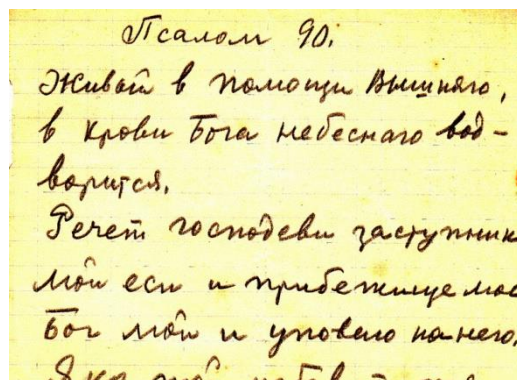 Псалом 90.
Живый в помощи Вышняго,
в крови Бога небеснаго вод-
ворится.
Речет господеви заступник
мой еси и прибежище мое
Бог мой и уповаю на него.
Яко той